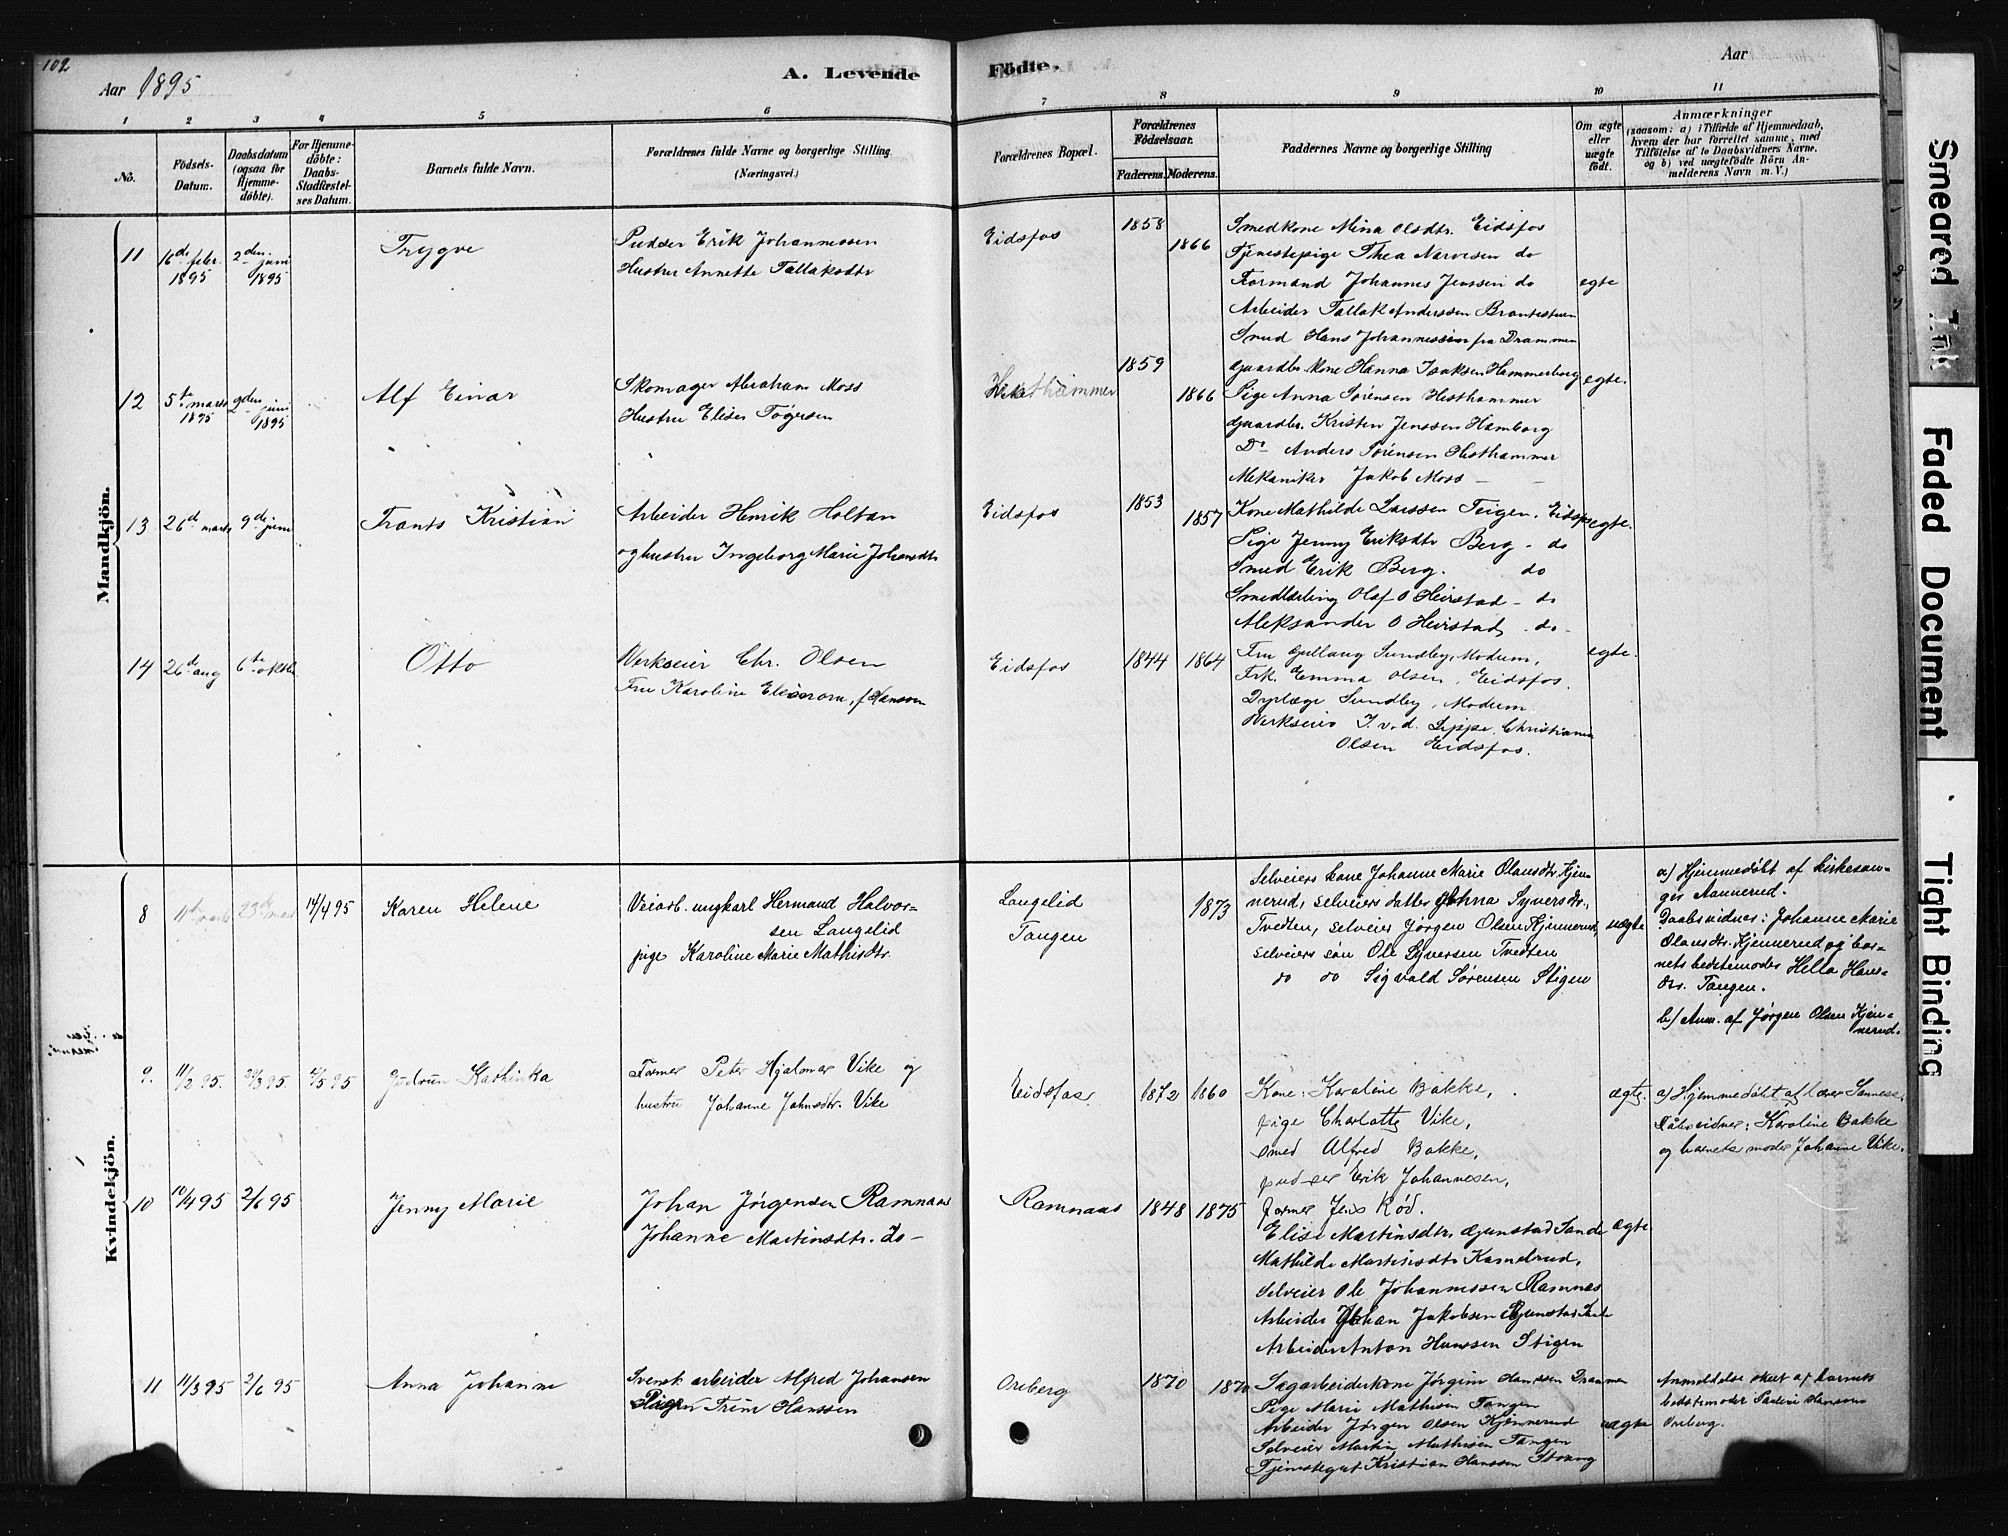 102
Aar 1895
A. Levende
Födte.
Aar
1 2 3 4 5 6 7 8 9 10 11
No.
Födsels-Datum.
Daabsdatum (ogsaa for Hjemme-döbte).
For Hjemme-döbte: Daabs-Stadfæstel-ses Datum.
Barnets fulde Navn.
Forældrenes fulde Navne og borgerlige Stilling.
(Næringsvei.)
Forældrenes Bopæl.
Forældrenes Födselsaar.
Faderens. Moderens.
Faddernes Navne og borgerlige Stilling
Om ægte eller uægte födt.
Anmærkninger
(saasom: a) i Tilfælde af Hjemmedaab,
hvem der har forrettet samme, med
Tilföielse af to Daabsvidners Navne,
og b) ved uægtefödte Börn An-
melderens Navn m. V.)
Mandkjön.
11 16de febr. 1895 2den juni 1895 Trygve
Pudser Erik Johannessen
Hustru Annette Tallaksdtr
Eidsfos 1858 1866
Smedkone Mina Olsdtr. Eidsfos
Tjenestepige Thea Narvesen do
Formand Johannes Jenssen do egte
Arbeider Tallak Anderssen
Smed Hans Johannessen fra Drammen
12 5te marts 1895 9den juni 1895 Alf Einar
Skomager Abraham Moss
Hustru Elise Tøgersen
Hesthammer 1859 1866
Gaardbr. kone Hanna Isaksen Hammerborg egte.
Pige Anna Sørensen Hesthammer
Gaardbr. Kristen Jenssen Hamborg
Do Anders Sørensen Hesthammer
Mekaniker Jakob Moss
13 26d marts 9de juni Frants Kristian
Arbeider Henrik Holtan
og hustru Ingeborg Marie Johansdtr
Eidsfos 1853 1857
Kone Mathilde Larssen Teigen. Eidsfos egte.
Pige Jenny Eriksdtr Berg - do
Smed Erik Berg. do
Smedlærling Olaf O Heirstad - do
Aleksander O Heirstad - do -
14 26d aug 6te oktbr Otto
Verkseier Chr. Olsen
Fru Karoline, f. Hanssen
Eidsfos 1844 1864
Fru Gullaug Sundby, Modum, egte.
Frk. Emma Olsen, Eidsfos.
Dyrlæge Sundby, Modum
Verkseier J. v. d. Lippe, Christiania
Olsen Eidsfos.
Kvindekjön.
8 14/4 95 Karen Helene
Veiarb. ungkarl Hermand Halvor-
sen Langelid
pige Karoline Marie Mathisdtr.
Langelid
Tangen
1873
Selveiers kone Johanne Marie Olausdtr. Kjen-
nerud, selveiers datter Johna Syversdtr.
Tvedten, selveier Jørgen Olsen Kjennerud, uægte
selveiers søn Ole Syversen Tvedten
do do Sigvald Sørensen Stigen
a) Hjemmedøbt af kirkesan-
ger Aannerud.
Daabsvidner: Johanne Marie
Olausdtr. Kjennerud og bar-
nets bedstemoder Hella Hans-
dtr. Tangen.
b) Anm. af Jørgen Olsen Kjen-
nerud.
9. 11/2 95. 95 /5 95 Gudrun Kathinka
Former Peter Hjalmar Vike og
hustru Johanne Johnsdtr. Vike
Eidsfos 1872 1860
Kone: Karoline Bakke,
pige Charlotte Vike,
smed Alfred Bakke,
pudser Erik Johannesen,
former Jens Kød.
ægte.
a) Hjemmedøbt af lærer Sanness.
Dåbsvidner: Karoline Bakke
og barnets moder Johanne Vike.
10 10/4 95 2/6 95 Jenny Marie
Johan Jørgensen Ramnaas
Johanne Martinsdtr. Do -
Ramnaas 1848 1875
Elise Martinsdtr. Gjunstad Sande ægte
Mathilde Martinsdtr
Selveier Ole Johannessen Ramnes
Arbeider Johan Jakobsen Gjunstad Sande
Arbeider Anton Hanssen Stigen
11 11/3 95 2/6 95 Anna Johanne
Svensk arbeider Alfred Johansen
Pigen Trine Hanssen
Oreberg 1870 1870
Sagarbeiderkone Jørgine Hanssen Drammen
Pige Marie Mathisen Tangen
Arbeider Jørgen Olsen Kjennerud uægte
Selveier Martin Mathisen Tangen
Tjenestegut Kristian Hanssen Strang
Anmeldelse skeet af barnets
bedstemoder Pauline Hanssen
Oreberg.
Smeared Ink
Faded Document
Tight Binding